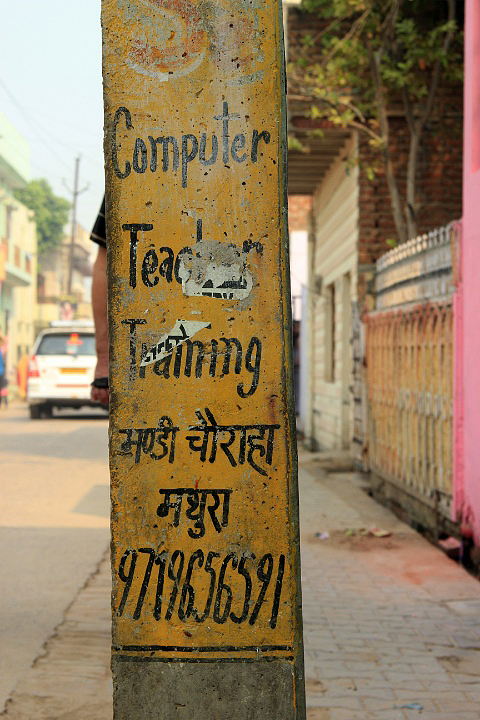 Computer
Teacher
Training
मण्डी चौराहा
मथुरा
9719656591